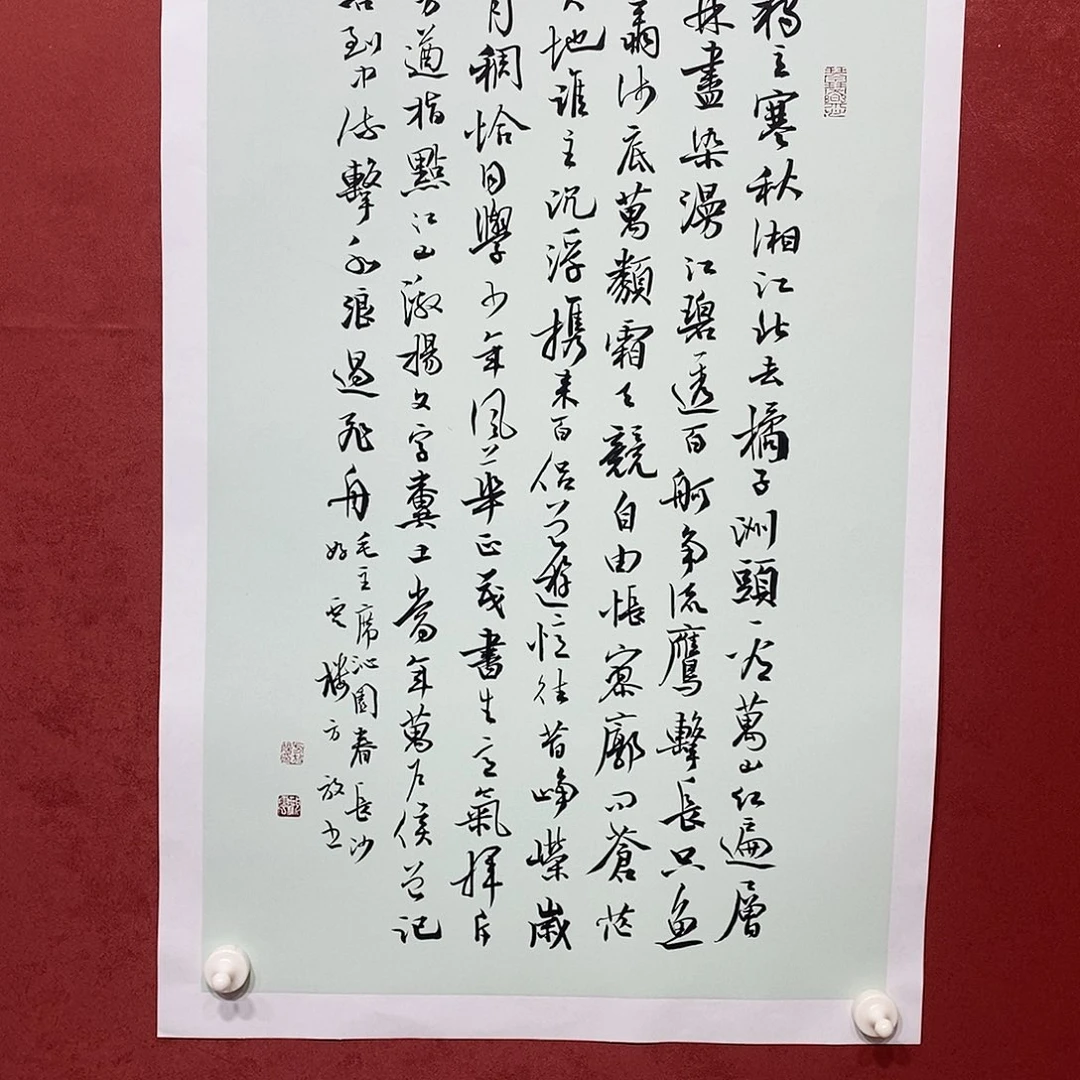 獨立寒秋湘江北去橘子洲頭看萬山红遍層
林盡染漫江碧透百舸争流鷹擊長空魚
翔淺底萬類霜天競自由悵寥廓问蒼茫
大地誰主沉浮携来百侣曾遊憶往昔崢嶸歲
月稠恰同學少年風華正茂書生意氣揮斥
方遒指點江山激揚文字糞土當年萬户侯曾記
否到中流擊水浪遏飛舟
毛主席沁園春長沙
樓方放書